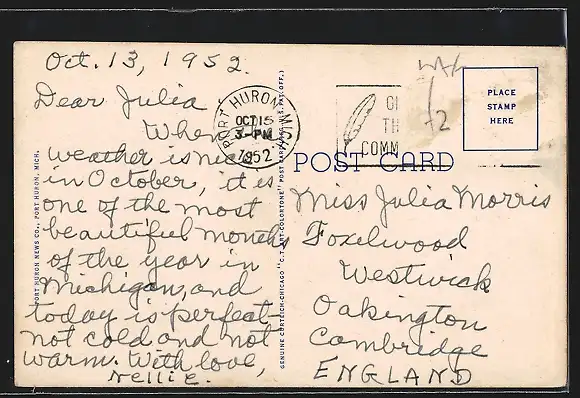 Oct. 13, 1952.
Dear Julia
When
weather is nice
in October, it is
one of the most
beautiful months
of the year in
Michigan, and
today is perfect-
not cold and not
warm. With love,
Nellie.
PORT HURON NEWS CO., PORT HURON, MICH.
PORT HURON
OCT 15
3-PM
1952
GENUINE CURTEICH-CHICAGO "C.T. ART-COLORTONE" POST CARD (REG. U.S. PAT. OFF.)
COMM
POST CARD
PLACE
STAMP
HERE
Miss Julia Morris
Foxelwood
Westwick
Oakington
Cambridge
ENGLAND